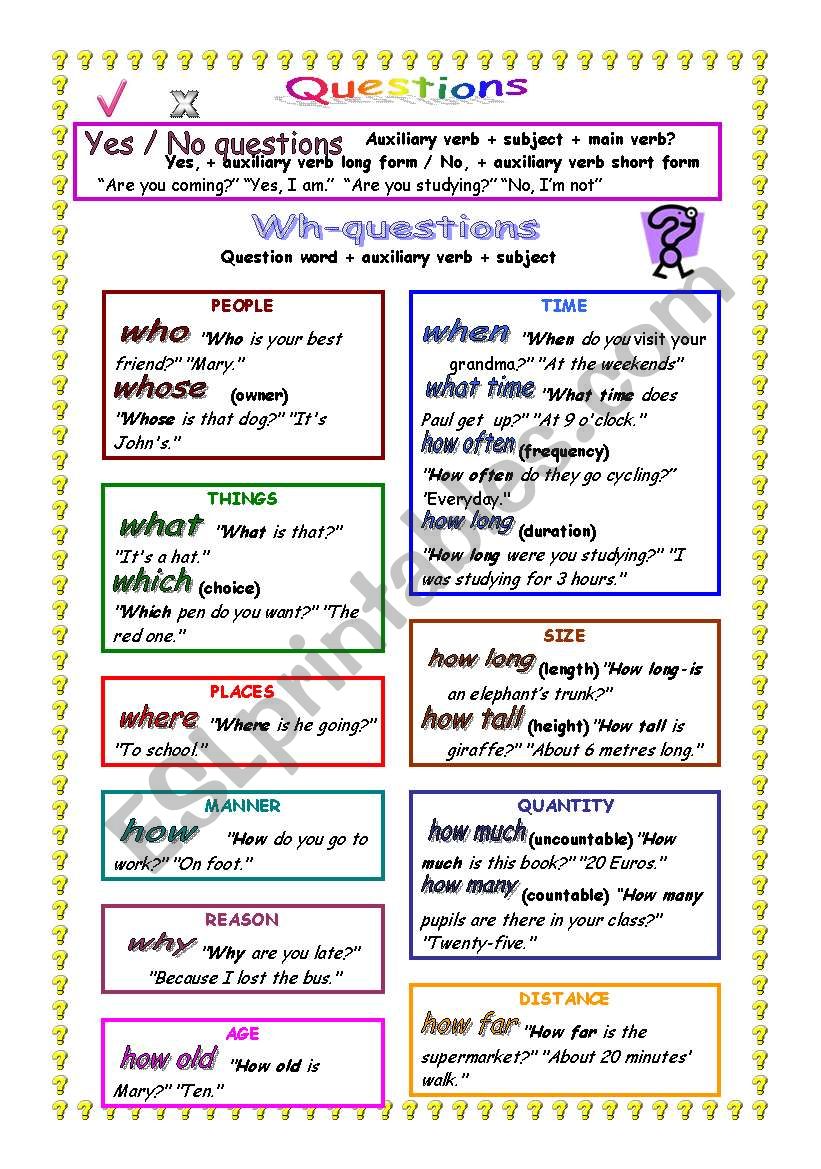 Questions
Yes / No questions Auxiliary verb + subject + main verb?
Yes, + auxiliary verb long form / No, + auxiliary verb short form
“Are you coming?” “Yes, I am.” “Are you studying?” “No, I’m not”
Wh-questions
Question word + auxiliary verb + subject
PEOPLE
who "Who is your best
friend?" "Mary."
whose (owner)
"Whose is that dog?" "It's
John's."
THINGS
what "What is that?"
"It's a hat."
which (choice)
"Which pen do you want?" "The
red one."
PLACES
where "Where is he going?"
"To school."
MANNER
how "How do you go to
work?" "On foot."
REASON
why "Why are you late?"
"Because I lost the bus."
AGE
how old "How old is
Mary?" "Ten."
TIME
when "When do you visit your
grandma?" "At the weekends"
what time "What time does
Paul get up?" "At 9 o'clock."
how often (frequency)
"How often do they go cycling?"
"Everyday."
how long (duration)
"How long were you studying?" "I
was studying for 3 hours."
SIZE
how long (length) "How long is
an elephant’s trunk?"
how tall (height) "How tall is
giraffe?" "About 6 metres long."
QUANTITY
how much (uncountable) "How
much is this book?" "20 Euros."
how many (countable) “How many
pupils are there in your class?"
"Twenty-five."
DISTANCE
how far "How far is the
supermarket?" "About 20 minutes'
walk."
ESLprintables.com